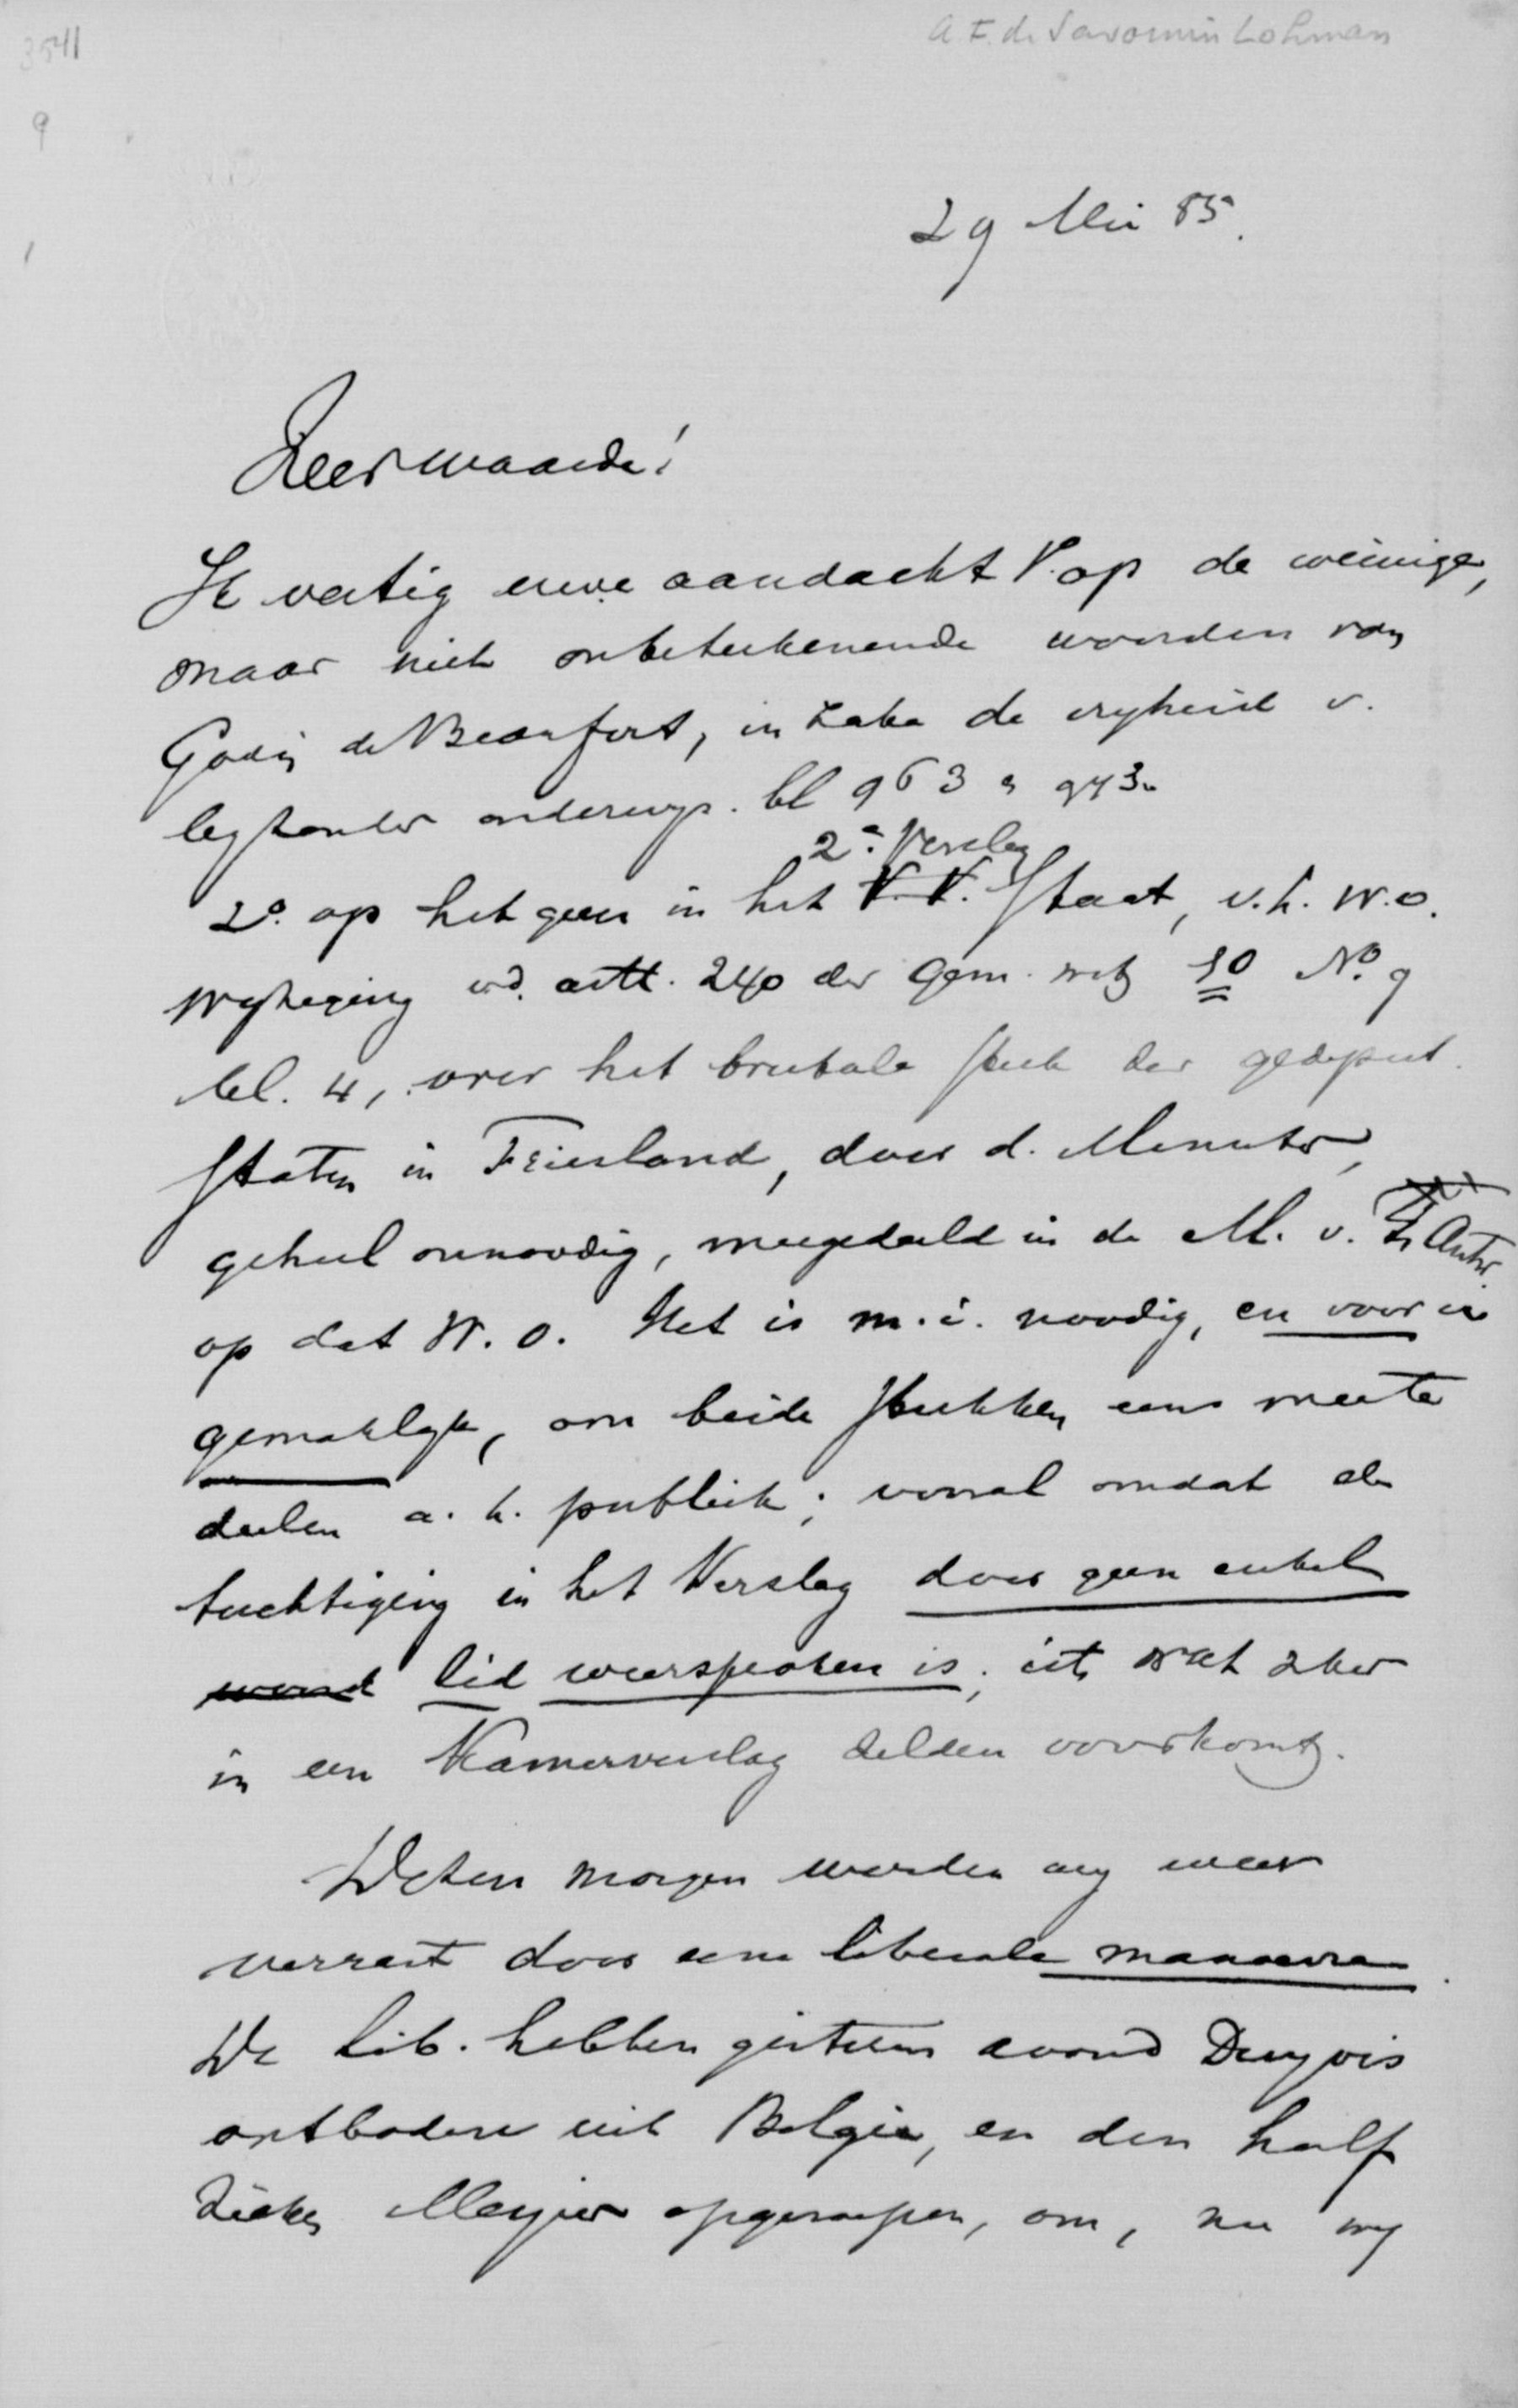 3541
A. F. de Savornin Lohman
9
1
29 Mei 85.
Zeer waarde!
Ik vestig uwe aandacht 1°. op de weinige,
maar niet onbeteekenende woorden van
Godin de Beaufort, in zake de vryheid v.
byzonder onderwys. bl 963 en 973.
2e Verslag
2°. op hetgeen in het V. V. staat, v.h. W.O.
wyziging v.d. artt. 240 der Gem. wet 10 No. 9
bl. 4, over het brutale stuk der gedeput.
Staten in Friesland, door d. Minister,
geheel onnoodig, meegedeeld in de M. v. Antw.
op dat W. O. Het is m.i. noodig, en voor u
gemaklyk, om beide stukken eens mee te
deelen a. h. publiek; vooral omdat de
tuchtiging in het Verslag door geen enkel
woord lid weersproken is; iets wat zker
in een Kamerverslag zelden voorkomt.
Dezen morgen werden wy weer
verrast door eene liberale manoevre.
De lib. hebben gisteren avond Duyvis
ontboden uit Belgie, en den half
zieken Meyier opgeroepen, om, nu wy